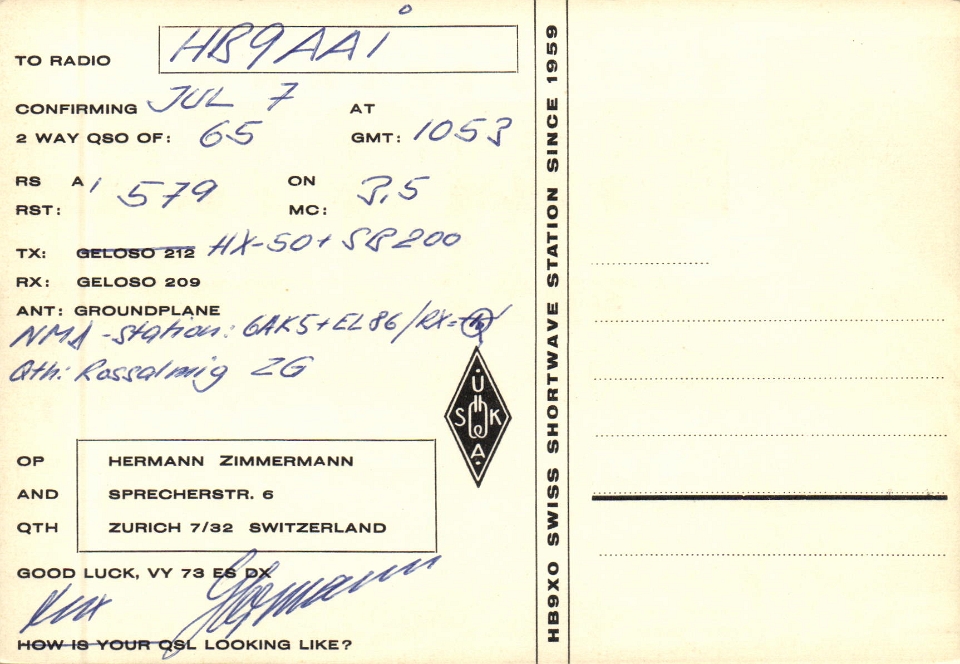 TO RADIO HB9AAi
CONFIRMING JUL 7 AT
2 WAY QSO OF: 65 GMT: 1053
RS A1 ON
RST: 579 MC: 3,5
TX: GELOSO 212 HX-50 + SB200
RX: GELOSO 209
ANT: GROUNDPLANE
NMD-Station: 6AK5+EL86/RX=
Qth: Rossalmig ZG
USKA
OP HERMANN ZIMMERMANN
AND SPRECHERSTR. 6
QTH ZURICH 7/32 SWITZERLAND
GOOD LUCK, VY 73 ES DX
Hermann
HOW IS YOUR QSL LOOKING LIKE?
HB9XO SWISS SHORTWAVE STATION SINCE 1959